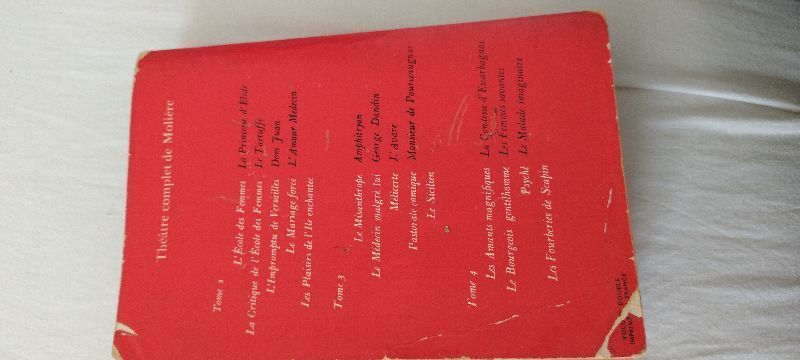 Théâtre complet de Molière
Tome 2
L'École des Femmes La Princesse d'Elide
La Critique de l'École des Femmes Le Tartuffe
L'Impromptu de Versailles Dom Juan
Le Mariage forcé L'Amour Médecin
Les Plaisirs de l'Ile enchantée
Tome 3
Le Misanthrope Amphitryon
Le Médecin malgré lui George Dandin
Mélicerte L'Avare
Pastorale comique Monsieur de Pourceaugnac
Le Sicilien
Tome 4
Les Amants magnifiques La Comtesse d'Escarbagnas
Le Bourgeois gentilhomme Les Femmes savantes
Psyché Le Malade imaginaire
Les Fourberies de Scapin
DOUBLE
FRANCE